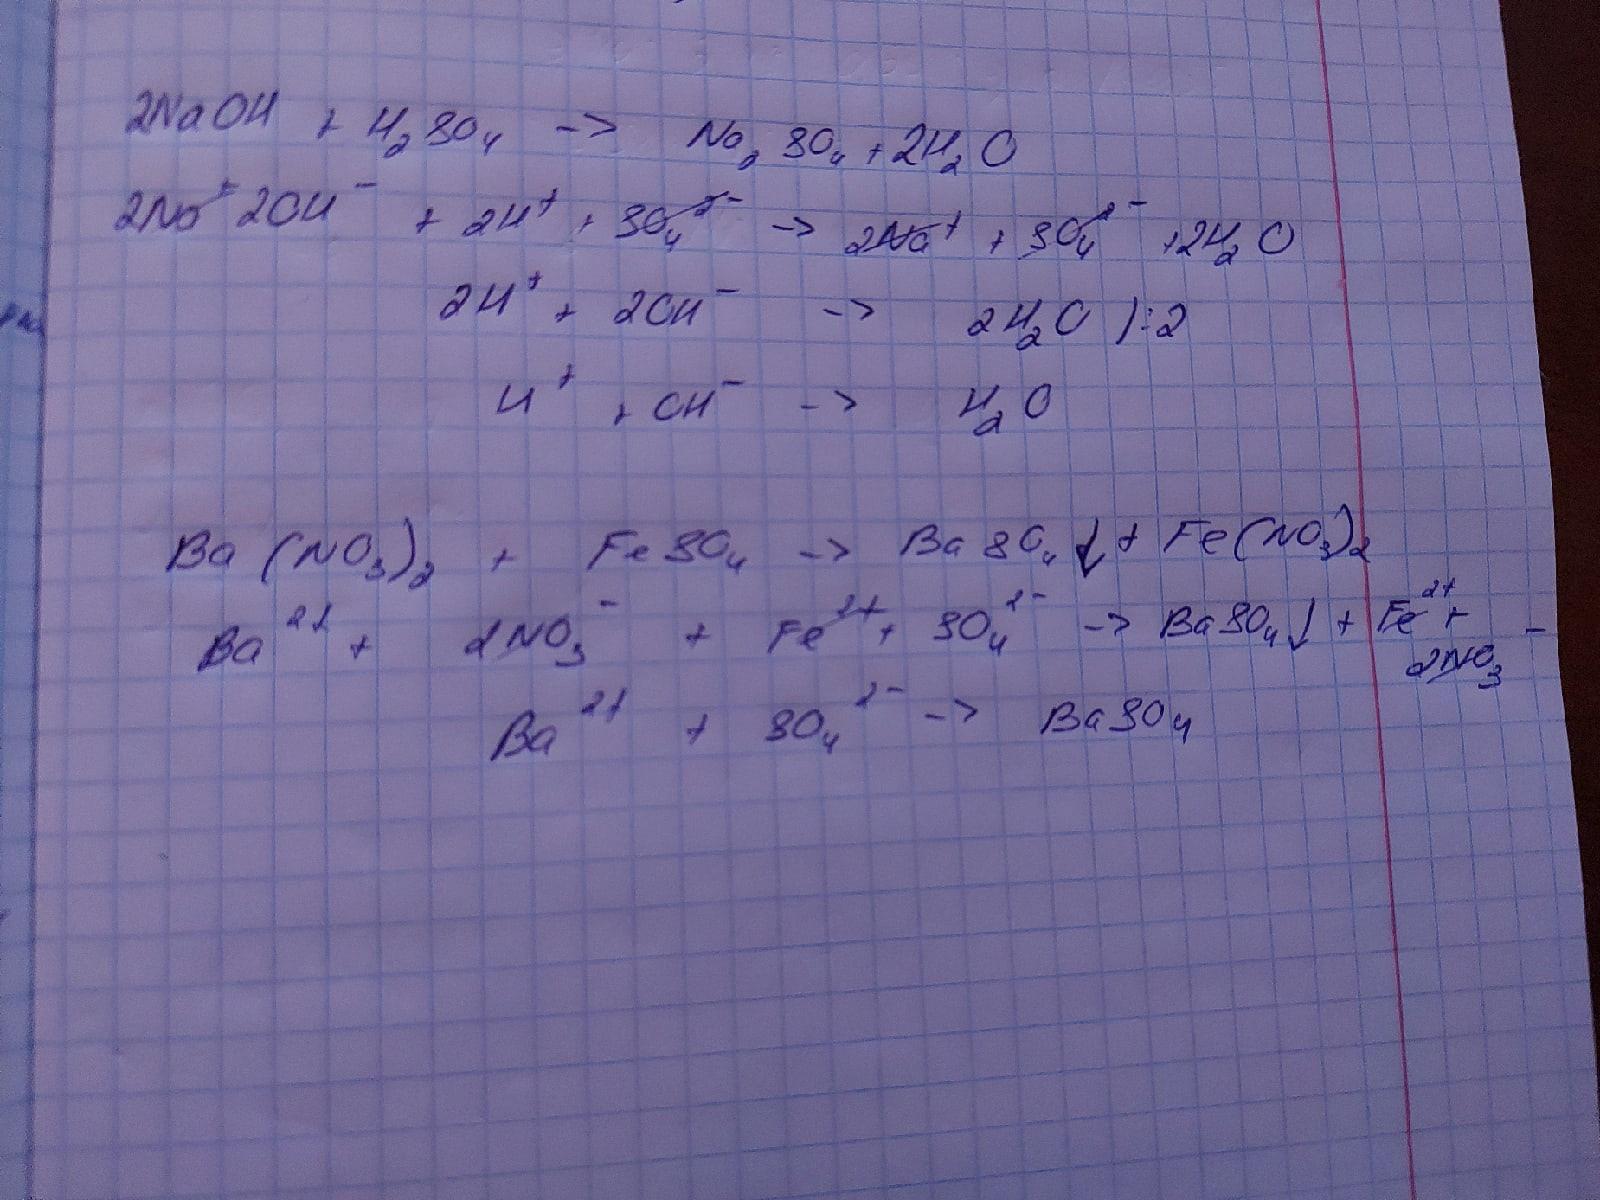 2NaOH + H₂SO₄ -> Na₂SO₄ + 2H₂O
2Na⁺ 2OH⁻ + 2H⁺ + SO₄²⁻ -> 2Na⁺ + SO₄²⁻ + 2H₂O
2H⁺ + 2OH⁻ -> 2H₂O ):2
H⁺ + OH⁻ -> H₂O
Ba(NO₃)₂ + FeSO₄ -> BaSO₄↓ + Fe(NO₃)₂
Ba²⁺ + 2NO₃⁻ + Fe²⁺ + SO₄²⁻ -> BaSO₄↓ + Fe²⁺ +
2NO₃⁻
Ba²⁺ + SO₄²⁻ -> BaSO₄